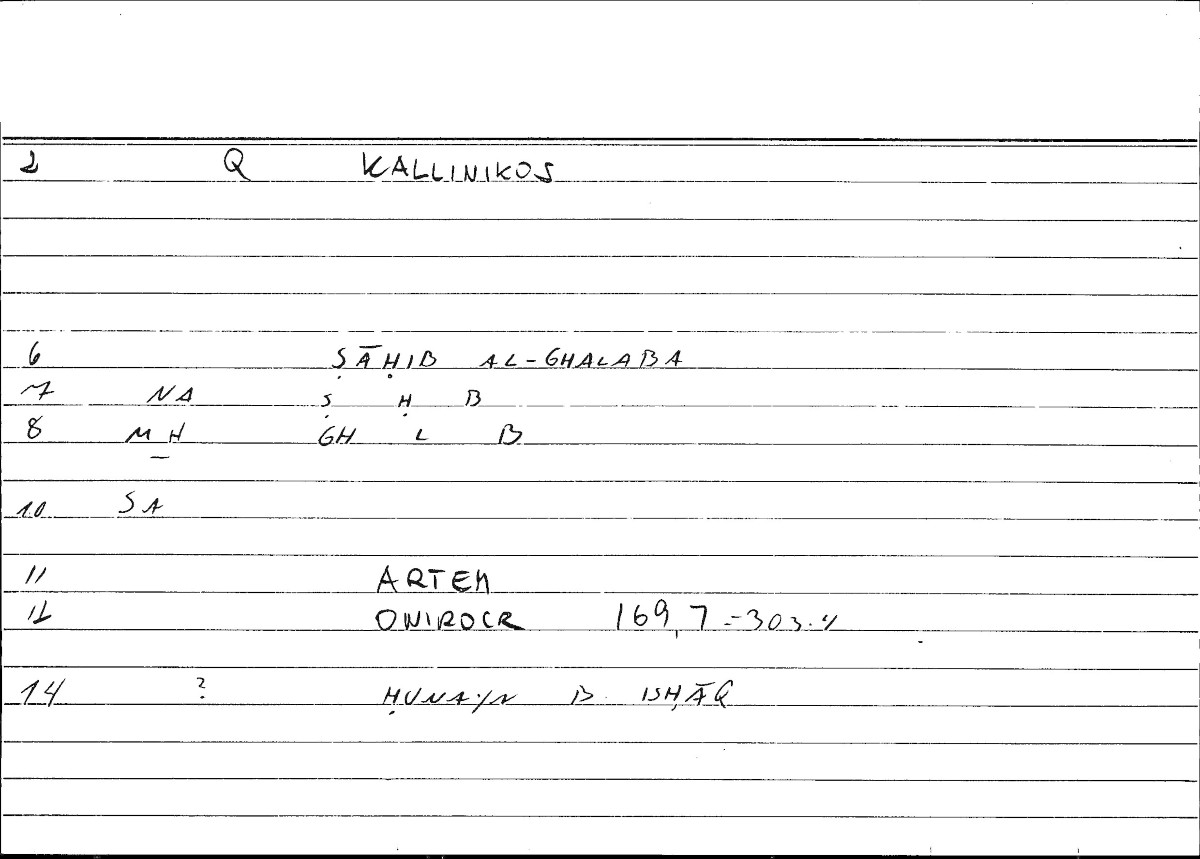 2 Q KALLINIKOS
6 ṢĀḤIB AL-GHALABA
7 NA Ṣ Ḥ B
8 M H̱ GH L B
10 SA
11 ARTEM
12 ONIROCR 169,7-303.4
14 ? ḤUNAYN B. ISḤĀQ